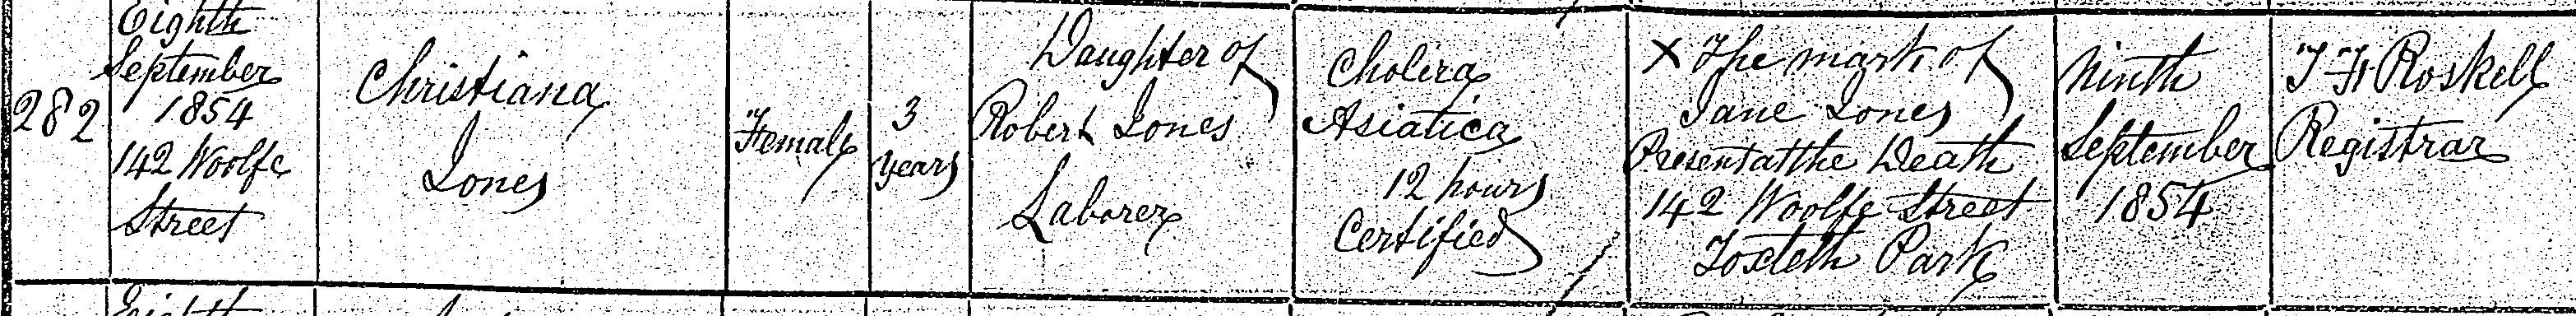 282
Eighth
September
1854
142 Woolfe
Street
Christiana
Jones
Female
3
years
Daughter of
Robert Jones
Laborer
Cholera
Asiatica
12 hours
Certified
X The mark of
Jane Jones
Present at the Death
142 Woolfe Street
Toxteth Park
Ninth
September
1854
Roskell
Registrar
Eighth